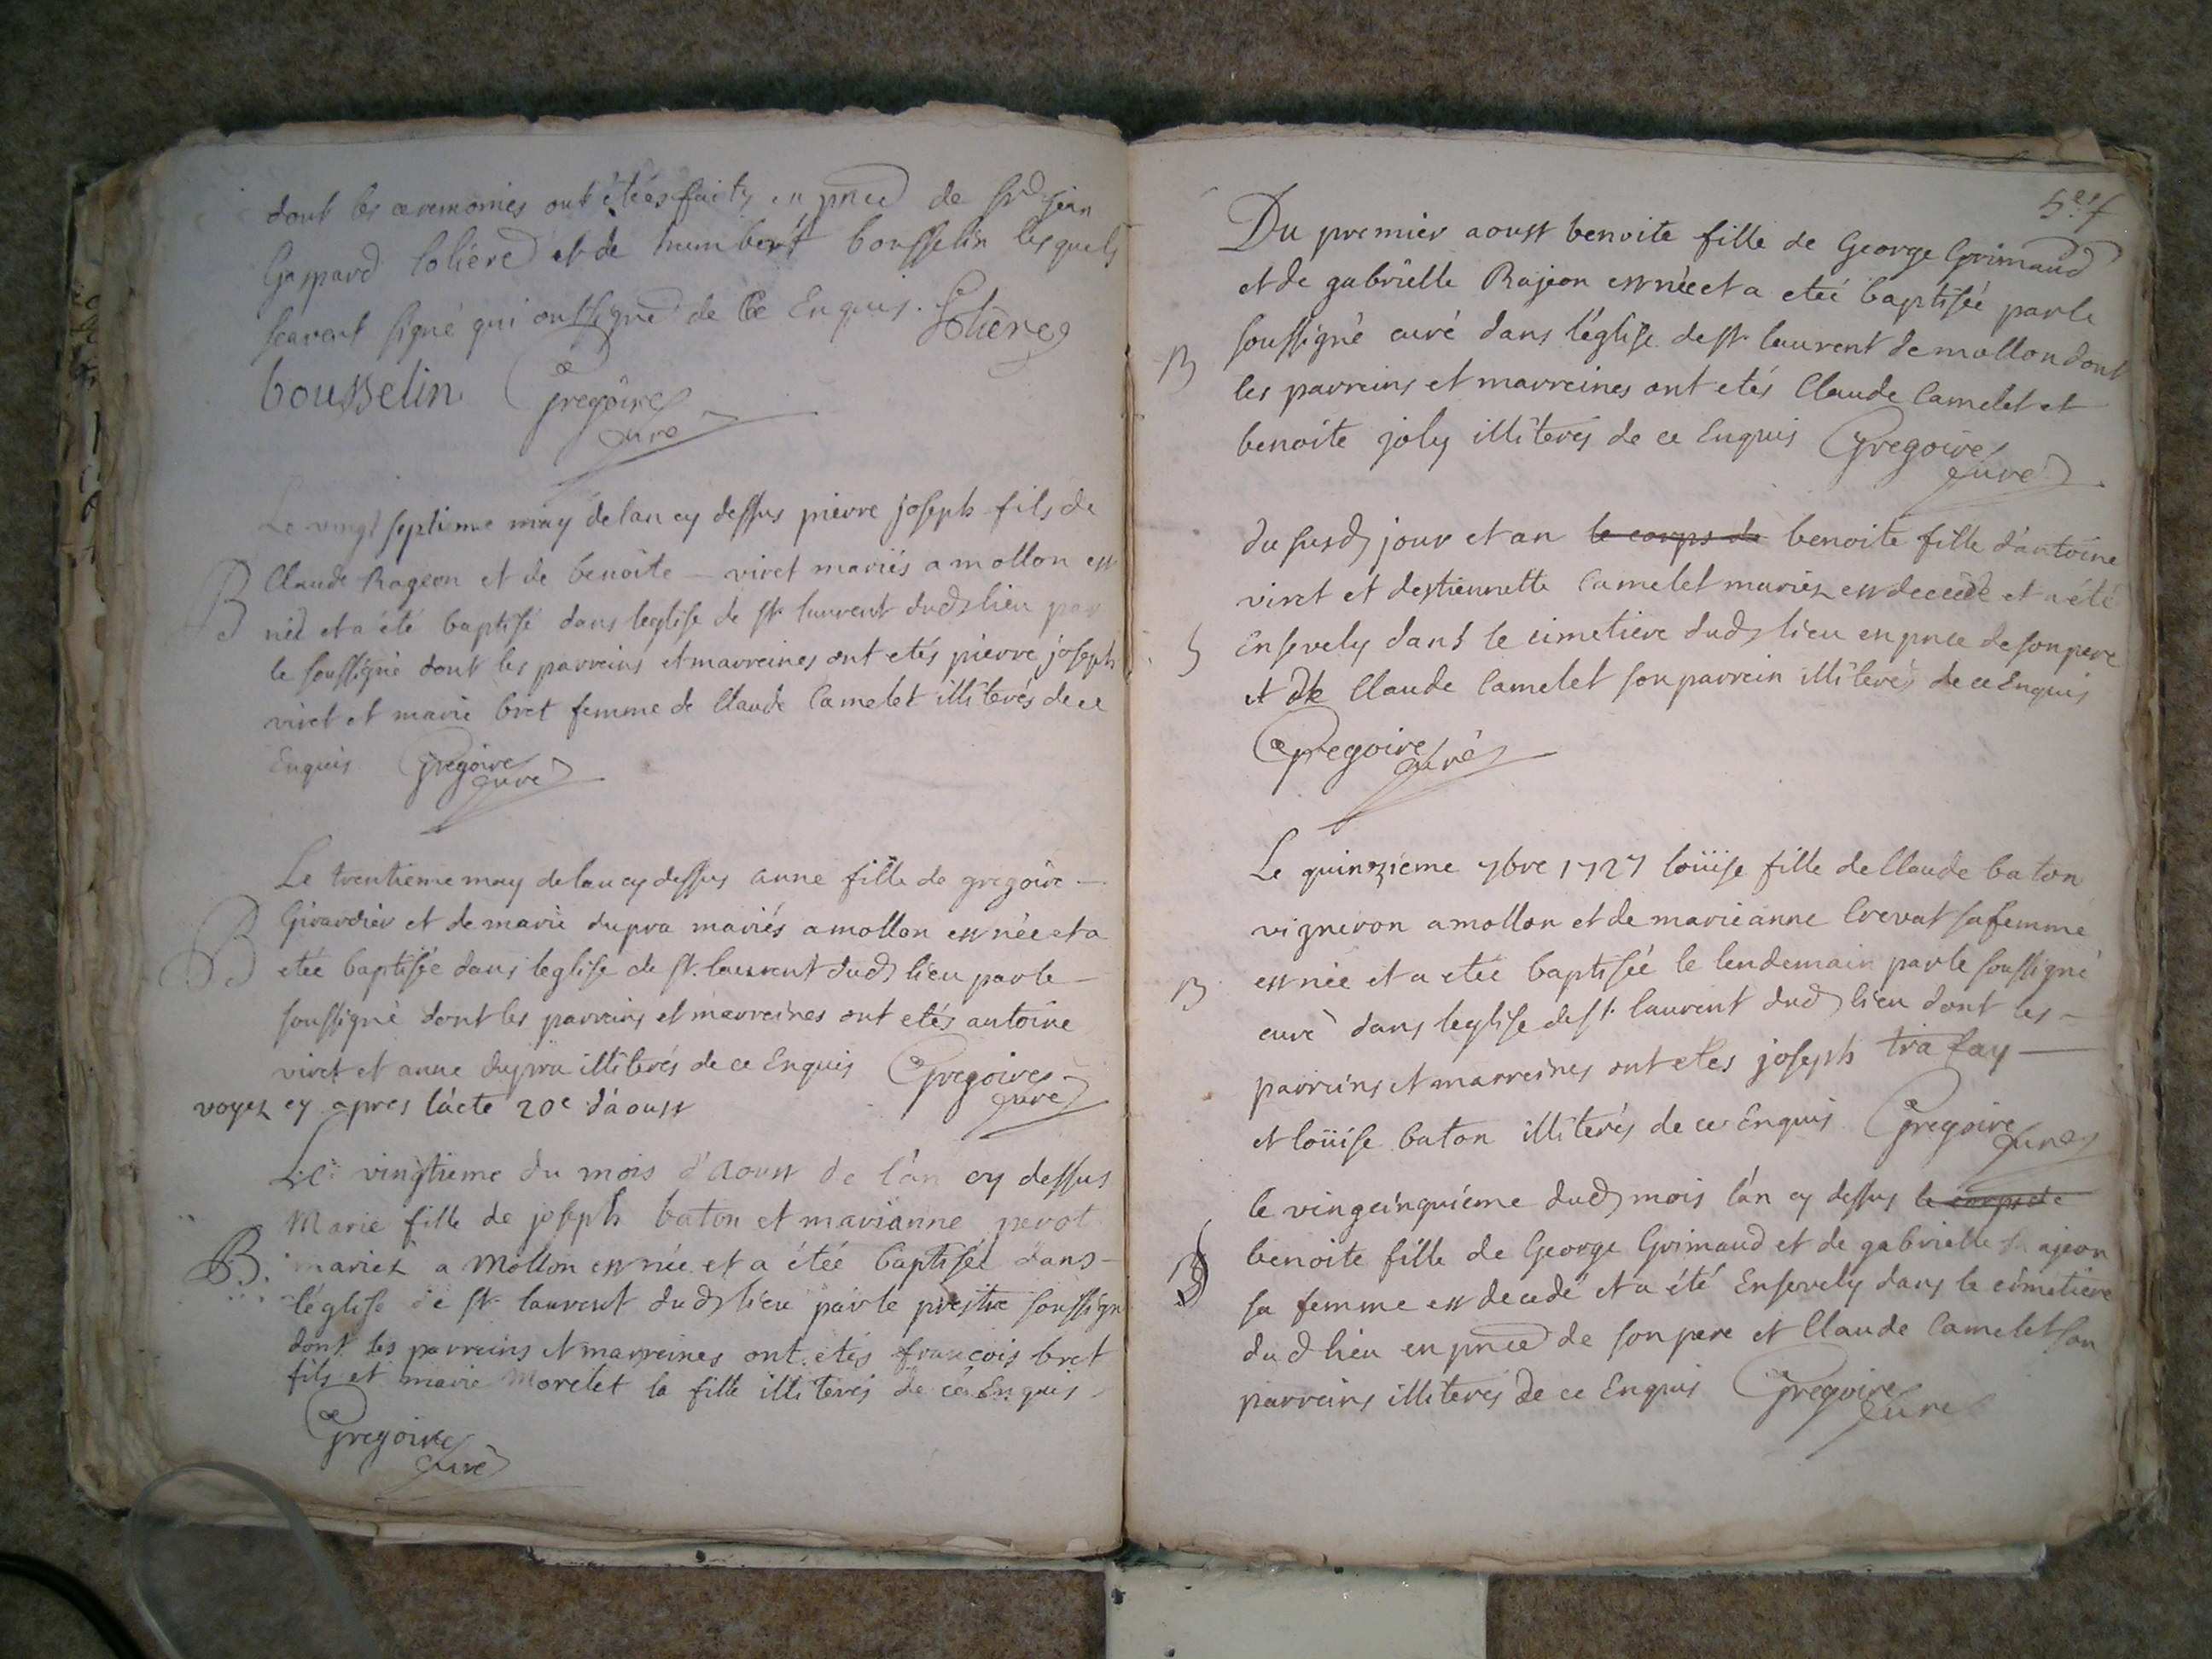 dont les ceremonies ont étées faites en pnce de Sr jean
Gaspard Coliere et de humbert bousselin lesquels
scavent signé qui ont signé de Ce Enquis. Coliere
bousselin Gregoire
curé
Le vingt septieme may de lan cy dessus pierre joseph fils de
B Claude Rageon et de benoite — viret mariés a mollon est
né et a été baptisé dans leglise de st laurent dud lieu par
le soussigné dont les parreins et marreines ont etés pierre joseph
viret et marie bret femme de Claude Camelet illiterés de ce
Enquis Gregoire
curé
Le trentieme may de lan cy dessus anne fille de gregoire —
B Girardier et de marie dupra mariés a mollon est née et a
etée baptisée dans leglise de st. laurent dud lieu par le —
soussigné dont les parreins et marreines ont etés antoine
viret et anne dupra illiterés de ce Enquis Gregoire
curé
voyez cy apres lácte 20e dáoust
Le vingtieme du mois d'aoust de l'an cy dessus
Marie fille de joseph baton et marianne perot
B. mariez a Mollon est née et a étée baptisée dans —
léglise de st laurent dud lieu par le prestre soussigné
dont les parreins et marreines ont etés francois bret
fils et marie Morelet la fille illiterés de ce Enquis
Gregoire
curé
Du premier aoust benoite fille de George Grimaud
et de gabrielle Rajeon est née et a eteé baptiseé par le
soussigné curé dans l'église de st laurent de mollon dont
B les parreins et marreines ont etés Claude Camelet et
benoite joly illiterés de ce Enquis Gregoire
curé
du susd jour et an le corps de benoite fille d'antoine
viret et destiennette Camelet mariez est decedé et a été
S Ensevely dans le cimetiere dud lieu en pnce de son pere
et de Claude Camelet son parrein illiterés de ce Enquis
Gregoire
curé
Le quinzieme 7bre 1727 loüise fille de Claude baton
vigneron a mollon et de marieanne Crevat sa femme
est née et a etée baptisée le lendemain par le soussigné
B curé dans leglise de st. laurent dud lieu dont les —
parreins et marreines ont etés joseph trafay —
et loüise baton illiterés de ce Enquis Gregoire
curé
le vingcinquiéme dud mois l'an cy dessus le corps de
benoite fille de George Grimaud et de gabrielle Rajeon
sa femme est decedé et a été Ensevely dans le cimetiere
dud lieu en pnce de son pere et Claude Camelet son
parreins illiterés de ce Enquis Gregoire
curé